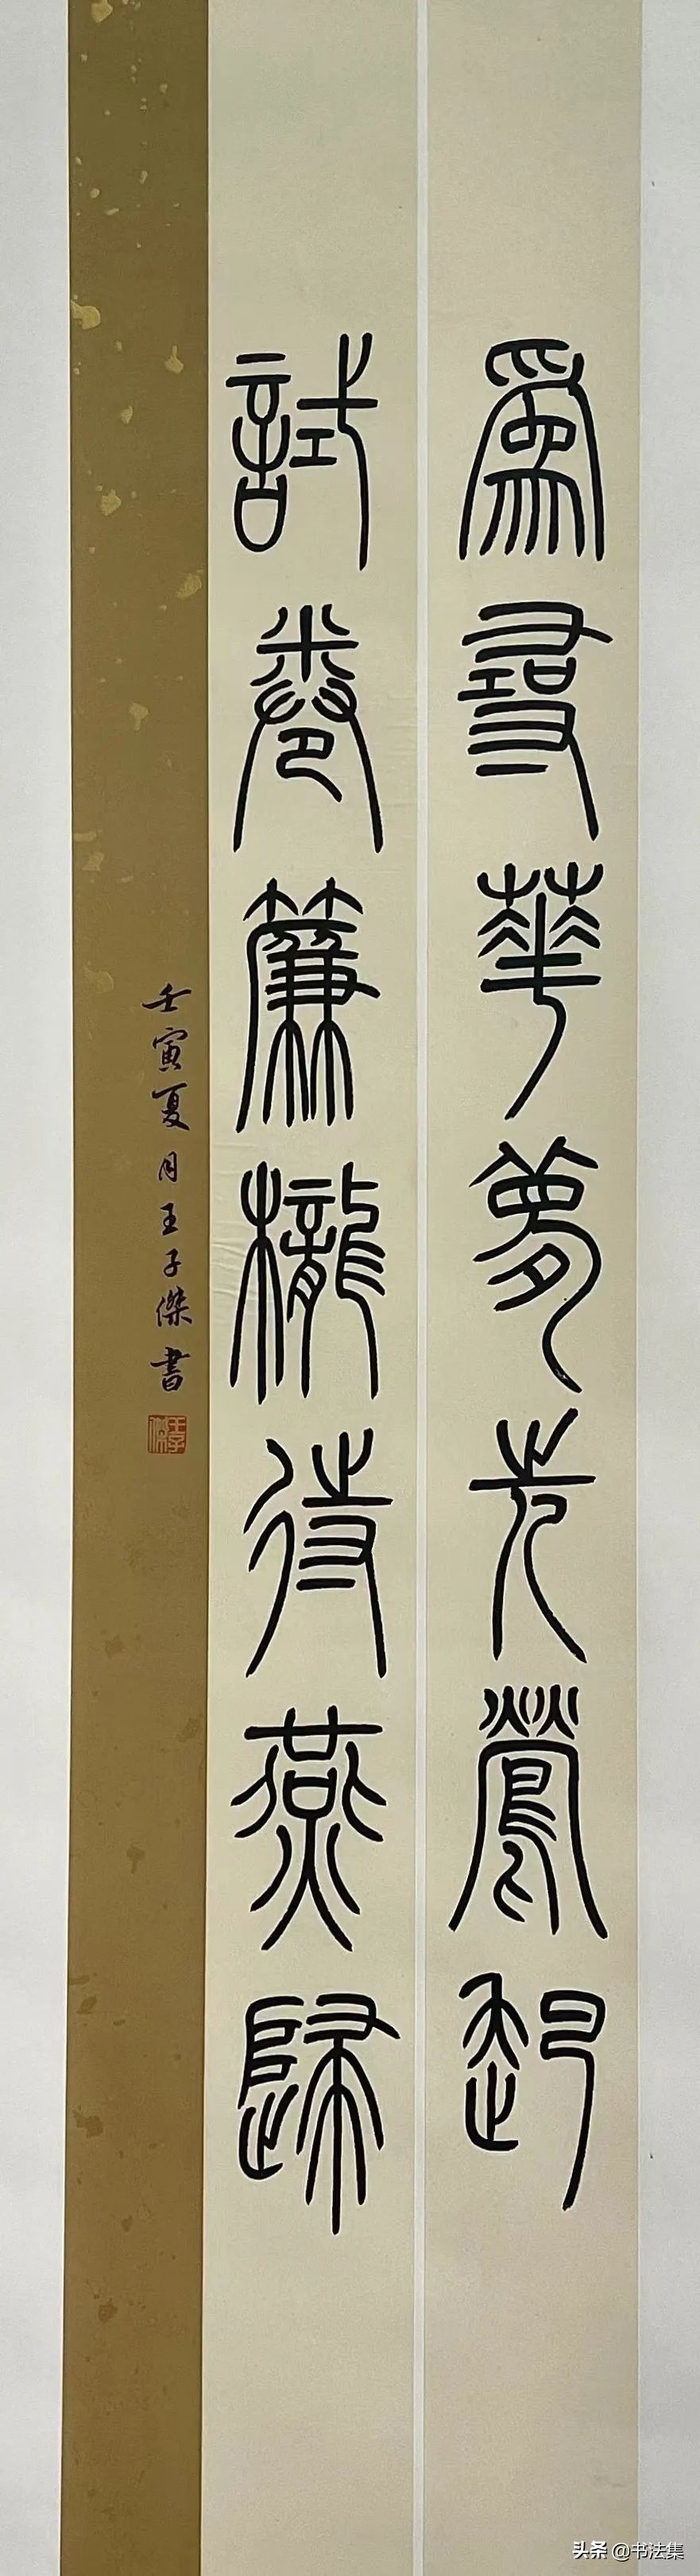 為尋華夢先鶯起
試卷簾櫳待燕歸
壬寅夏月王子傑書
王子傑
头条 @书法集